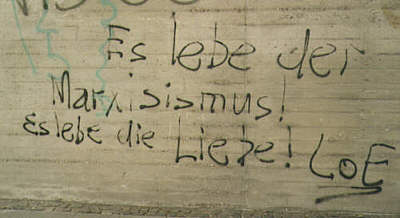 Es lebe der
Marxisismus!
Es lebe die Liebe!
LoE